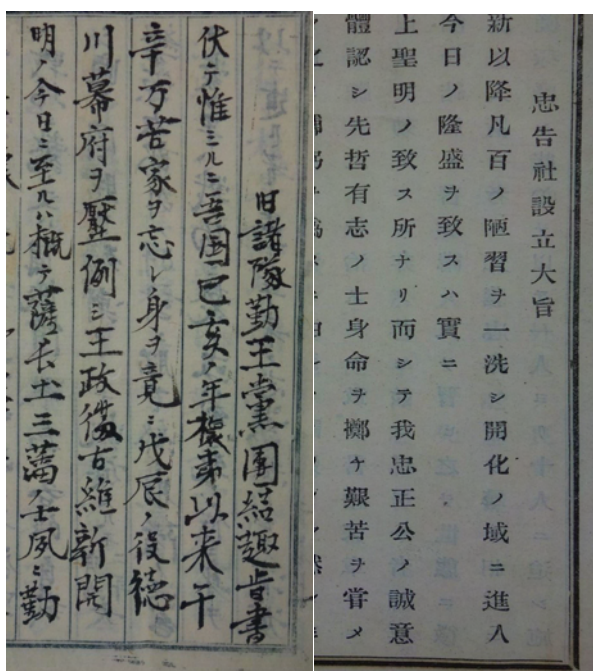 忠告社設立大旨
新以降凡百ノ陋習ヲ一洗シ開化ノ域ニ進入
今日ノ隆盛ヲ致スハ實ニ
上聖明ノ致ス所ナリ而シテ我忠正公ノ誠意
體認シ先哲有志ノ士身命ヲ擲ケ艱苦ヲ嘗メ
旧諸隊勤王黨團結趣旨書
伏テ惟ミルニ吾国已亥ノ年以来千
辛万苦家ヲ忘レ身ヲ竟ニ戊辰ノ役徳
川幕府ヲ壓倒シ王政復古維新開
明ノ今日ニ至ルハ概テ薩長土三藩士夙ニ勤